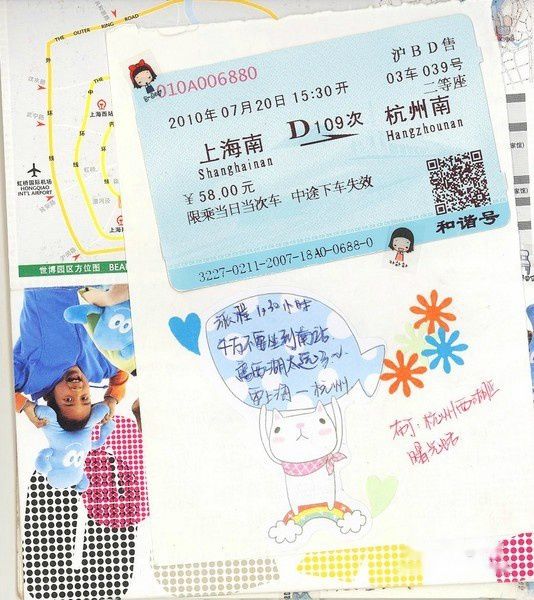 THE OUTER RING ROAD
外
环
内
环
上海西站
虹桥国际机场
HONGQIAO
INT'L AIRPORT
世博园区方位图 BEA
010A006880
沪BD售
2010年07月20日 15:30开
03车 039号
二等座
上海南
D109次
杭州南
Shanghainan
Hangzhounan
¥58.00元
限乘当日当次车 中途下车失效
和谐号
3227-0211-2007-18A0-0688-0
旅程1:30小时
千万不要坐到南站
离西湖太远了~
上海—杭州
于:杭州西湖